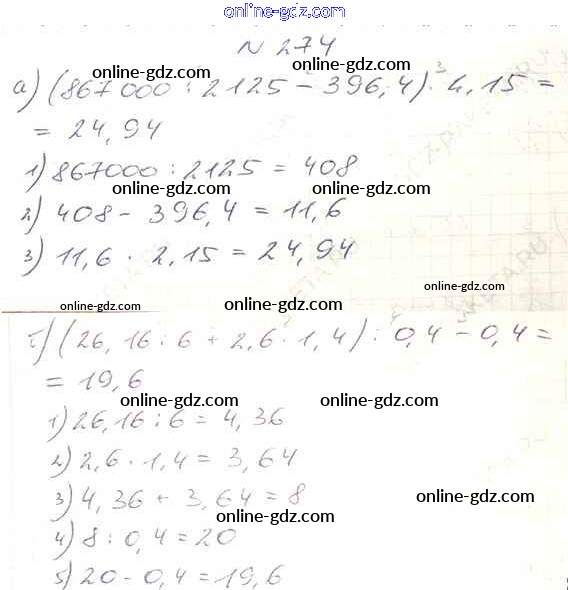 online-gdz.com
N 274
online-gdz.com online-gdz.com
а) (867000 : 2125 - 396,4) · 2,15 =
= 24,94
1) 867000 : 2125 = 408
online-gdz.com online-gdz.com
2) 408 - 396,4 = 11,6
3) 11,6 · 2,15 = 24,94
online-gdz.com
online-gdz.com online-gdz.com
б) (26,16 : 6 + 2,6 · 1,4) : 0,4 - 0,4 =
= 19,6
online-gdz.com online-gdz.com
1) 26,16 : 6 = 4,36
2) 2,6 · 1,4 = 3,64
3) 4,36 + 3,64 = 8
online-gdz.com
online-gdz.com
4) 8 : 0,4 = 20
5) 20 - 0,4 = 19,6